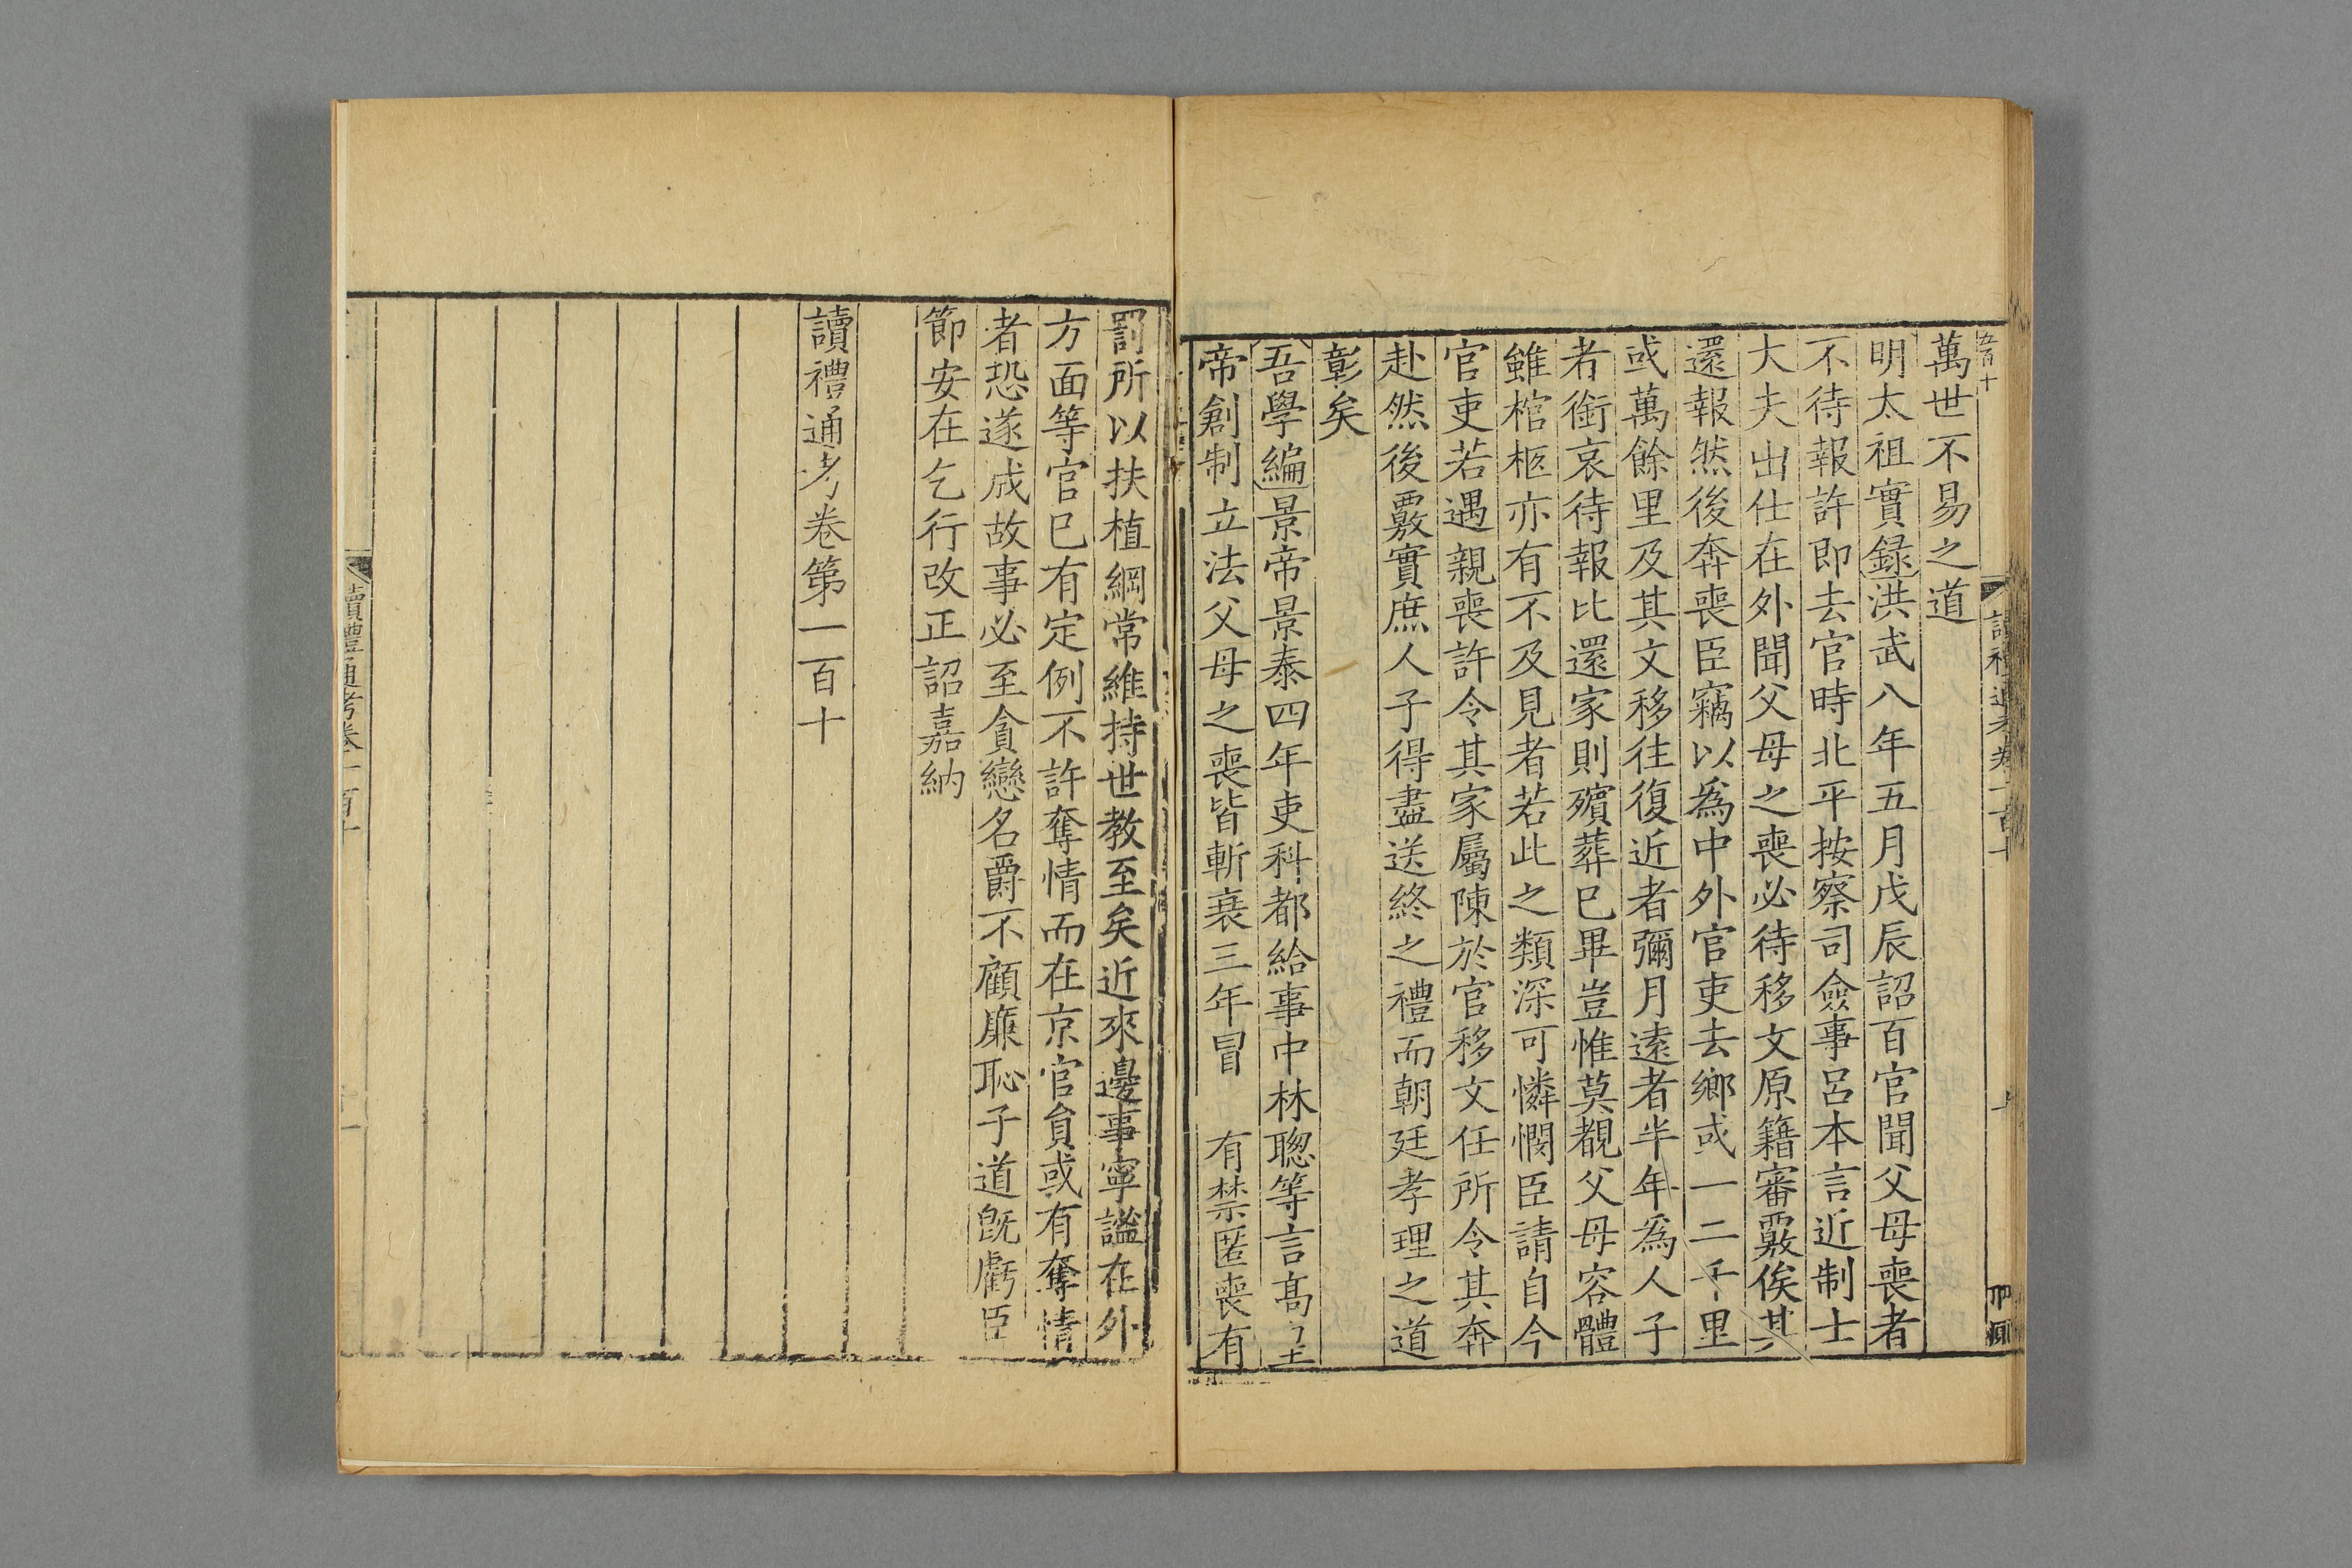 萬世不易之道
明太祖實錄洪武八年五月戊辰詔百官聞父母喪者
不待報許即去官時北平按察司僉事呂本言近制士
大夫出仕在外聞父母之喪必待移文原籍審覈俟其
還報然後奔喪臣竊以為中外官吏去鄉或一二千里
或萬餘里及其文移往復近者彌月遠者半年為人子
者銜哀待報比還家則殯葬已畢豈惟莫覩父母容體
雖棺柩亦有不及見者若此之類深可憐憫臣請自今
官吏若遇親喪許令其家屬陳於官移文任所令其奔
赴然後覈實庶人子得盡送終之禮而朝廷孝理之道
彰矣
吾學編景帝景泰四年吏科都給事中林聰等言高皇
帝創制立法父母之喪皆斬衰三年冒 有禁匿喪有
罰所以扶植綱常維持世教至矣近來邊事寧謐在外
方面等官已有定例不許奪情而在京官員或有奪情
者恐遂成故事必至貪戀名爵不顧廉恥子道旣虧臣
節安在乞行改正詔嘉納
讀禮通考卷第一百十
讀禮通考卷一百十